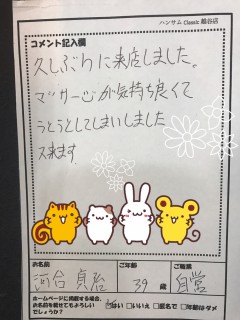 ハンサム Classic 越谷店
コメント記入欄
久しぶりに来店しました。
マッサージが気持ち良くて
うとうとしてしまいしました
又来ます
お名前
ご年齢
ご職業
河合 貞治
39 歳
自営
ホームページに掲載する場合、
お名前を載せてもよろしい
でしょうか?
はい □いいえ □匿名で □年齢はダメ